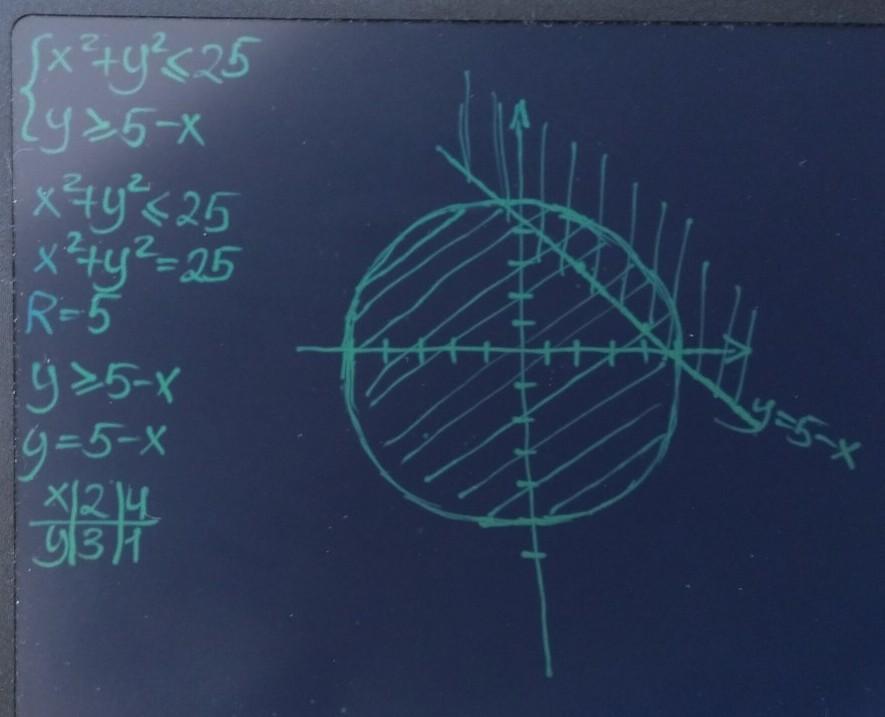 {x²+y²⩽25
{y⩾5-x
x²+y²⩽25
x²+y²=25
R=5
y⩾5-x
y=5-x
x|2|4
y|3|1
y=5-x